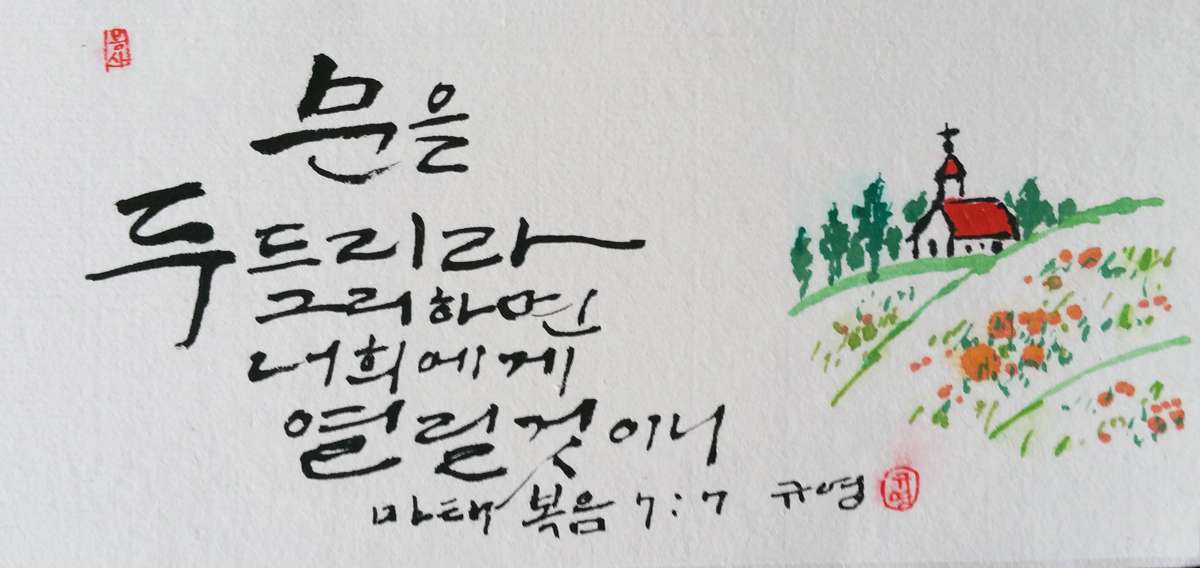 문을
두드리라
그리하면
너희에게
열릴것이니
마태복음 7:7 규영
규영